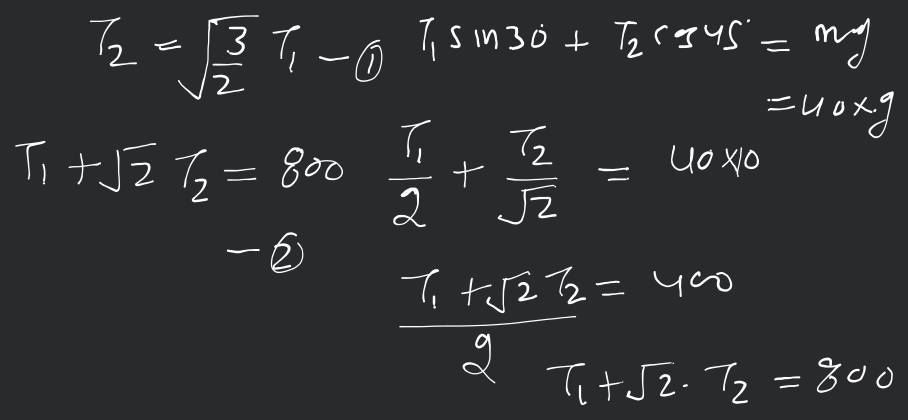 T₂ = √(3/2) T₁ – ① T₁ sin30° + T₂ cos45° = mg
= 40 x g
T₁ + √2 T₂ = 800 T₁/2 + T₂/√2 = 40 x 10
– ②
(T₁ + √2 T₂)/2 = 400
T₁ + √2 . T₂ = 800